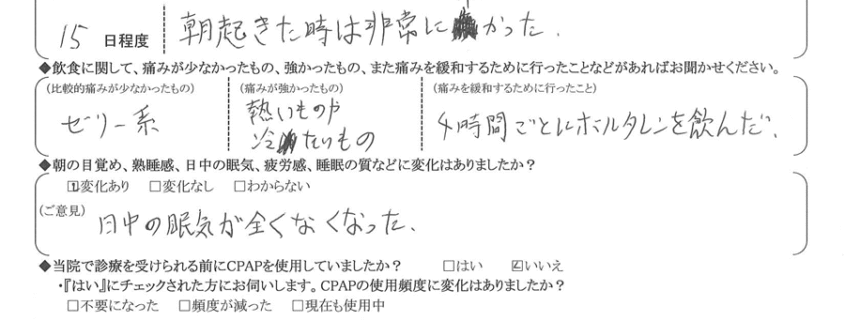 15 日程度 朝起きた時は非常に かった.
◆飲食に関して、痛みが少なかったもの、強かったもの、また痛みを緩和するために行ったことなどがあればお聞かせください。
(比較的痛みが少なかったもの) (痛みが強かったもの) (痛みを緩和するために行ったこと)
ゼリー系 熱いものや 4時間ごとにボルタレンを飲んだ.
冷たいもの
◆朝の目覚め、熟睡感、日中の眠気、疲労感、睡眠の質などに変化はありましたか？
☑変化あり □変化なし □わからない
(ご意見) 日中の眠気が全くなくなった.
◆当院で診療を受けられる前にCPAPを使用していましたか？ □はい ☑いいえ
・『はい』にチェックされた方にお伺いします。CPAPの使用頻度に変化はありましたか？
□不要になった □頻度が減った □現在も使用中